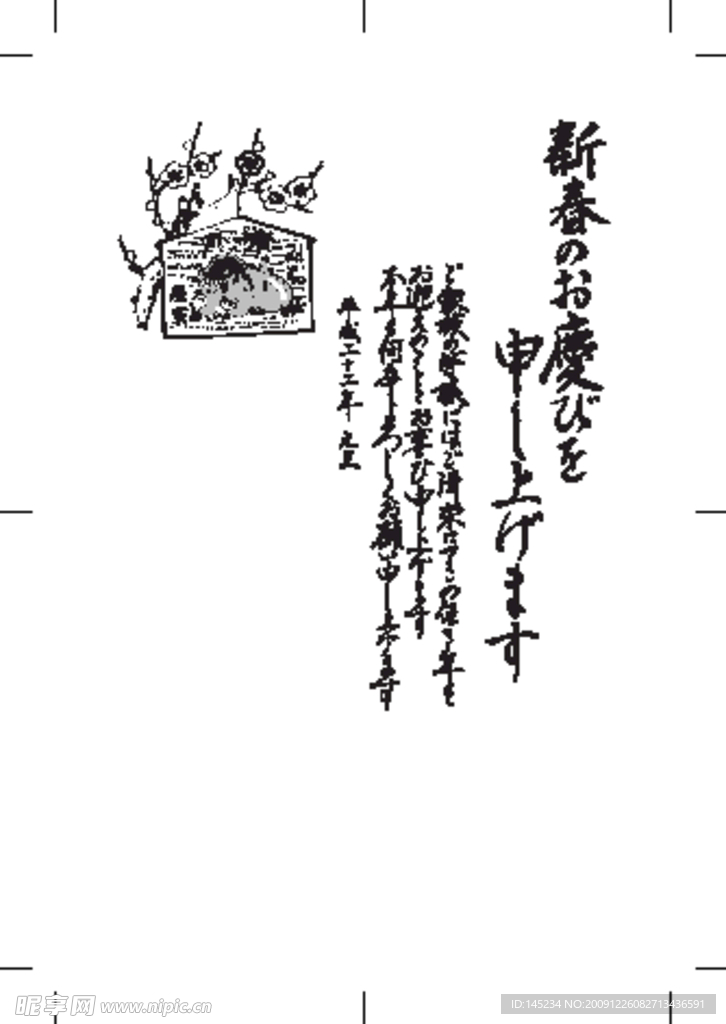 新春のお慶びを
申し上げます
の皆様にはご清栄にてこの佳き年を
お迎えのこととお喜び申し上げます
本年も何卒よろしくお願い申し上げます
平成二十二年 元旦
昵享网 www.nipic.cn
ID:145234 NO:20091226082713436591